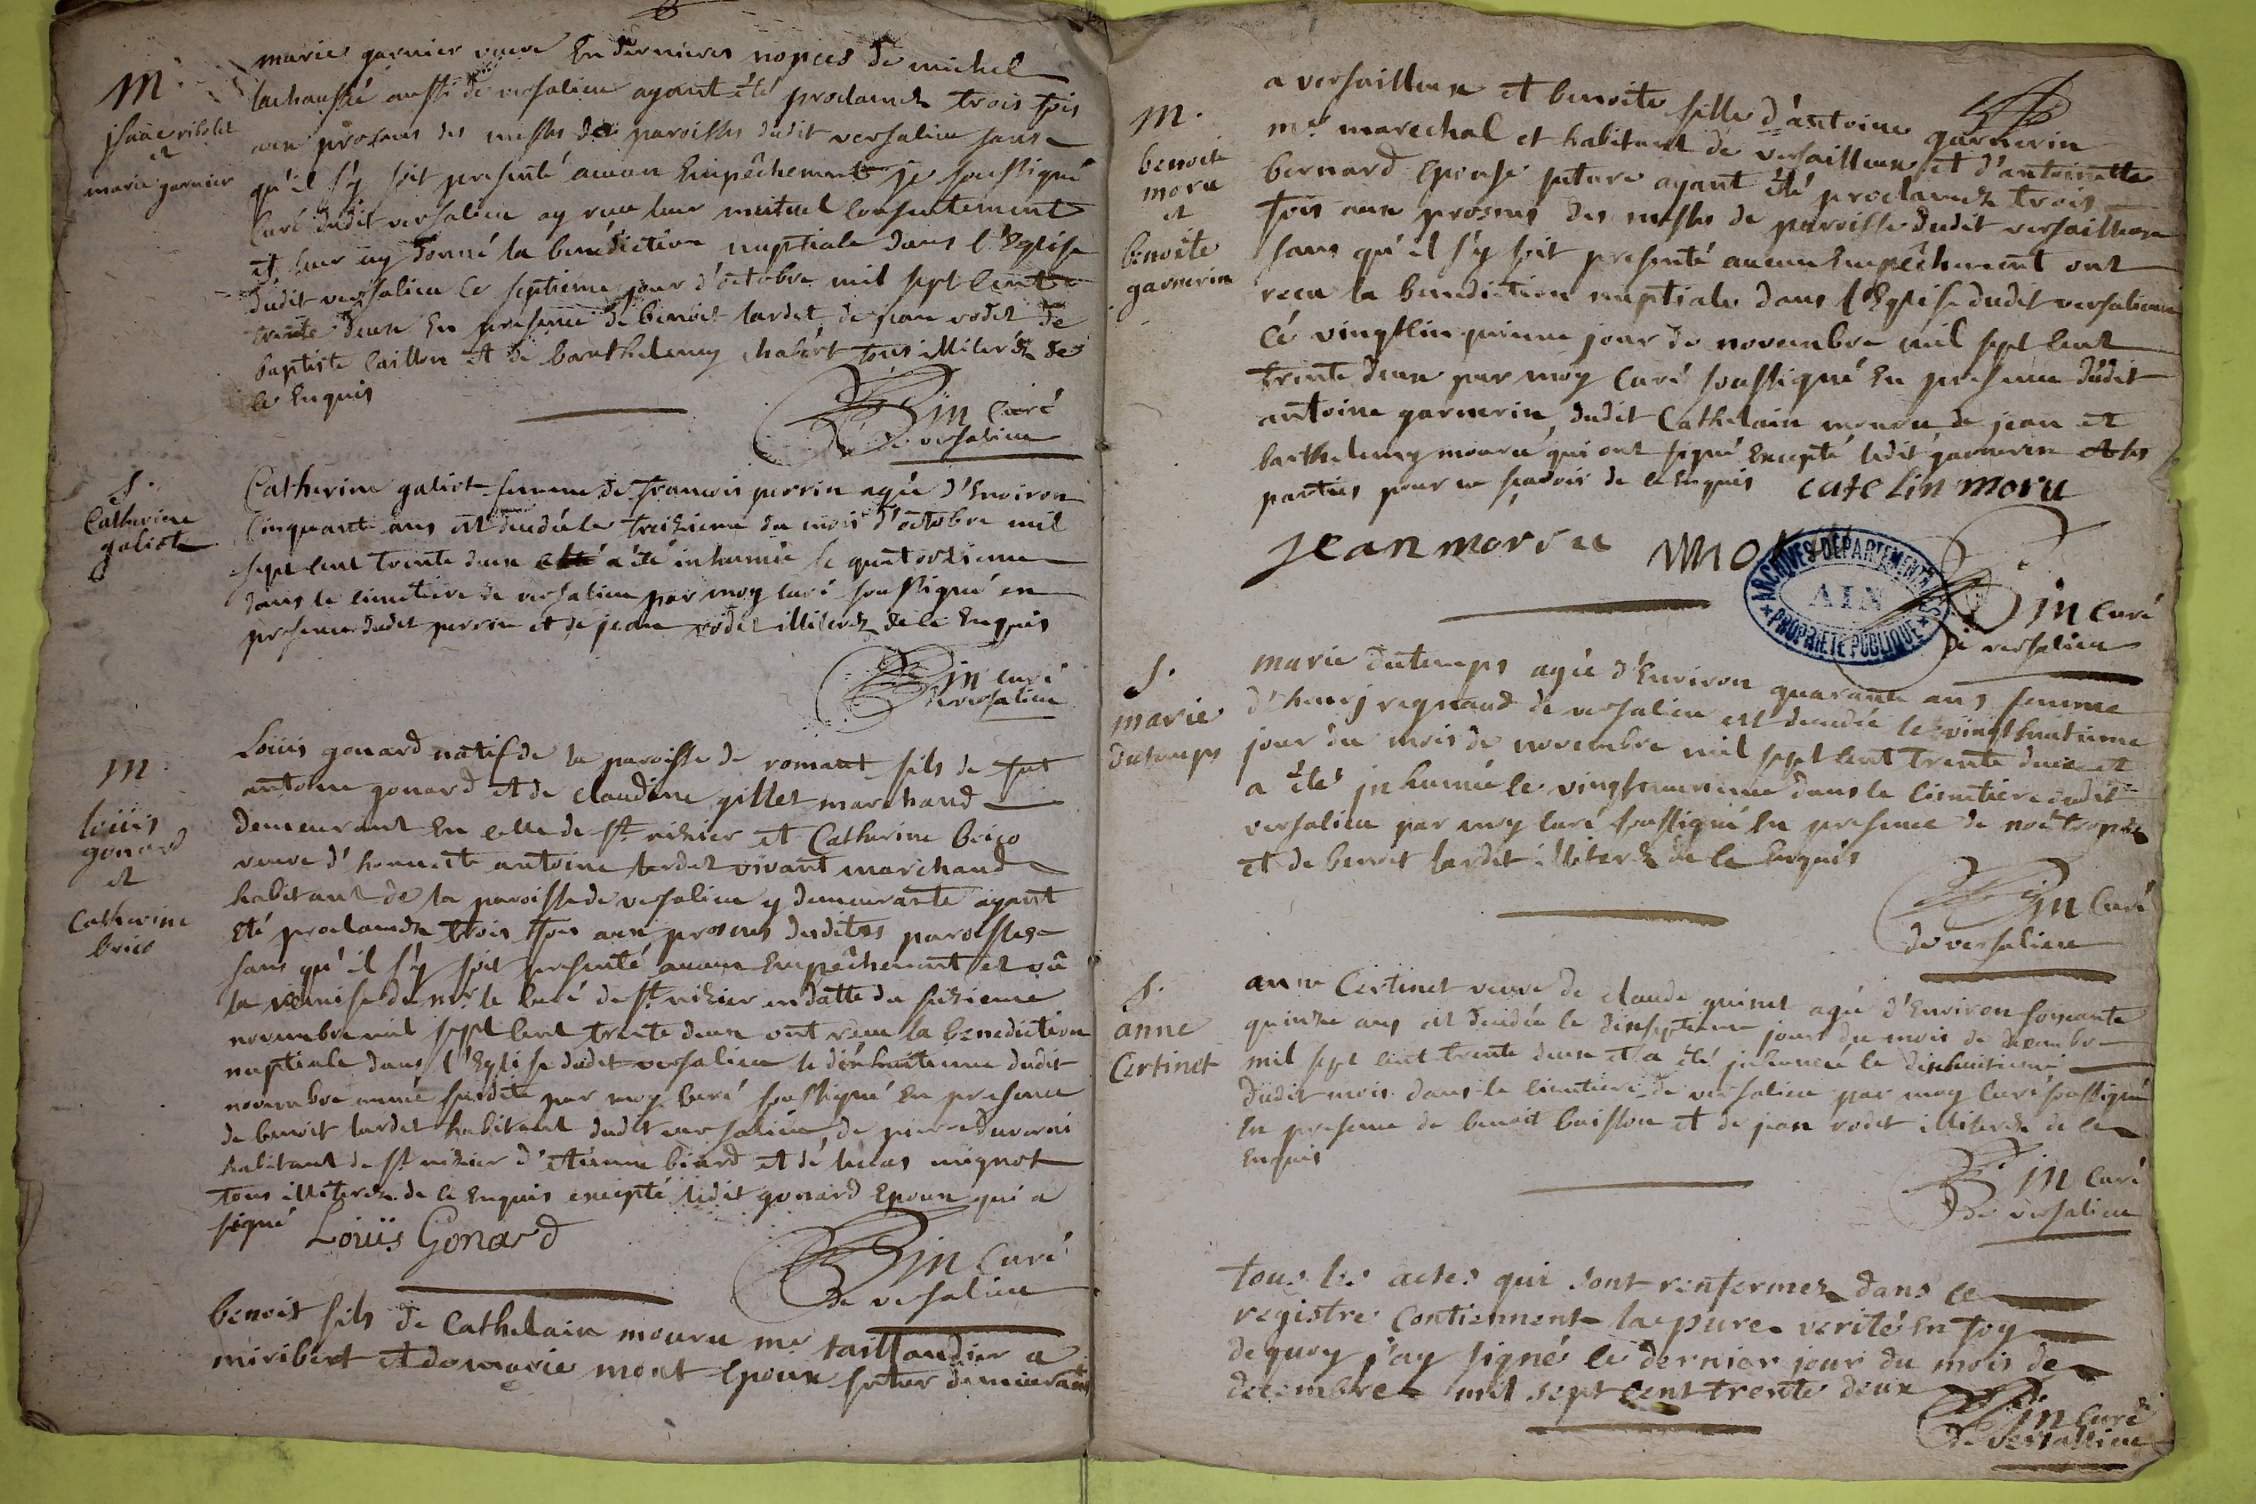 M.
jsaac ribolet
et
marie garnier
marie garnier veuve En dernieres nopces de michel
lachaussé aussi de versalieu ayant été proclamez trois fois
aux prosnes des messes de paroisses dudit versalieu sans
qu'il s'y soit presenté aucun Empêchement je soussigné
Curé dudit versalieu ay recu leur mutuel Consentement
et leur ay donné la benediction nuptiale dans l'Eglise
dudit versalieu ce septieme jour d'octobre mil sept Cent
trente deux En presence de benoit tardet de jean rodet de
baptiste Caillon et de barthelemy chabert tous illiterez de
ce Enquis
Curé
de versalieu
S.
Catherine
galiot
Catherine galiot femme de francois perrin agée d'Environ
Cinquante ans est decedée le treizieme du mois d'octobre mil
sept Cent trente deux a été inhumée le quatorzieme
dans le cimetiere de versalieu par moy Curé soussigné en
presence dudit perrin et de jean rodet illiterez de ce Enquis
Curé
de versalieu
M.
loüis
gonard
et
Catherine
brico
Loüis gonard natif de la paroisse de romant fils de fut
antoine gonard et de claudine gillet marchand
demeurant En celle de St nizier et Catherine brico
veuve d'honnete antoine tardet vivant marchand
habitant de la paroisse de versalieu y demeurante ayant
Eté proclamez trois fois aux prosnes desdites paroisses
sans qu'il s'y soit presenté aucun Empêchement et vû
la remise de mr le Curé de St nizier en datte du seizieme
novembre mil sept Cent trente deux ont recu la benediction
nuptiale dans l'Eglise dudit versalieu le dixhuitieme dudit
novembre année susdite par moy Curé soussigné En presence
de benoit tardet habitant dudit versalieu, de pierre
habitant de St nizier d'Etienne biard et de lucas mignot
tous illiterez de ce Enquis excepté ledit gonard Epoux qui a
signé Loüis Gonard
Curé
de versalieu
benoit fils de Cathelain mouru mr taillandier a
miribert et de marie mont Epoux futur demeurant
M.
benoit
moru
et
benoite
garnerin
a versailleux et benoite fille d'antoine garnerin
mr marechal et habitant de versailleux et d'antoinette
bernard Epouse future ayant été proclamez trois
fois aux prosnes des messes de paroisse dudit versailleux
sans qu'il s'y soit presenté aucun Empêchement ont
recu la benediction nuptiale dans l'Eglise dudit versalieux
Cé vingt Cinquieme jour de novembre mil sept Cent
trente deux par moy Curé soussigné En presence dudit
antoine garnerin, dudit Cathelain mouru de jean et
barthelemy mouru qui ont signé Excepté ledit garnerin et les
parties pour ne sçavoir de ce Enquis catelin moru
jean moru
ARCHIVES DÉPARTEMENTALES
AIN
PROPRIÉTÉ PUBLIQUE
Curé
de versalieu
S.
marie
Dutemps
marie dutemps agée d'Environ quarante ans femme
d'henry regnaud de versalieu est decedée le vingthuitieme
jour du mois de novembre mil sept Cent trente deux et
a été jnhumée le vingtneuvieme dans le Cimetiere dudit
versalieu par moy Curé soussigné En presence de
et de benoit tardet illiterez de ce Enquis
Curé
de versalieu
S.
anne
Certinet
anne Certinet veuve de claude quinet agée d'Environ soixante
quinze ans est decedée le dixseptieme jour du mois de decembre
mil sept Cent trente deux et a été jnhumée le dixhuitieme
dudit mois dans le Cimetiere de versalieu par moy Curé soussigné
En presence de benoit buisson et de jean rodet illiterez de ce
Enquis
Curé
de versalieu
tous les actes qui sont renfermez dans ce
registre Contiennent la pure verité En foy
de quoy j'ay signé le dernier jour du mois de
decembre mil sept Cent trente deux
Curé
de versallieu